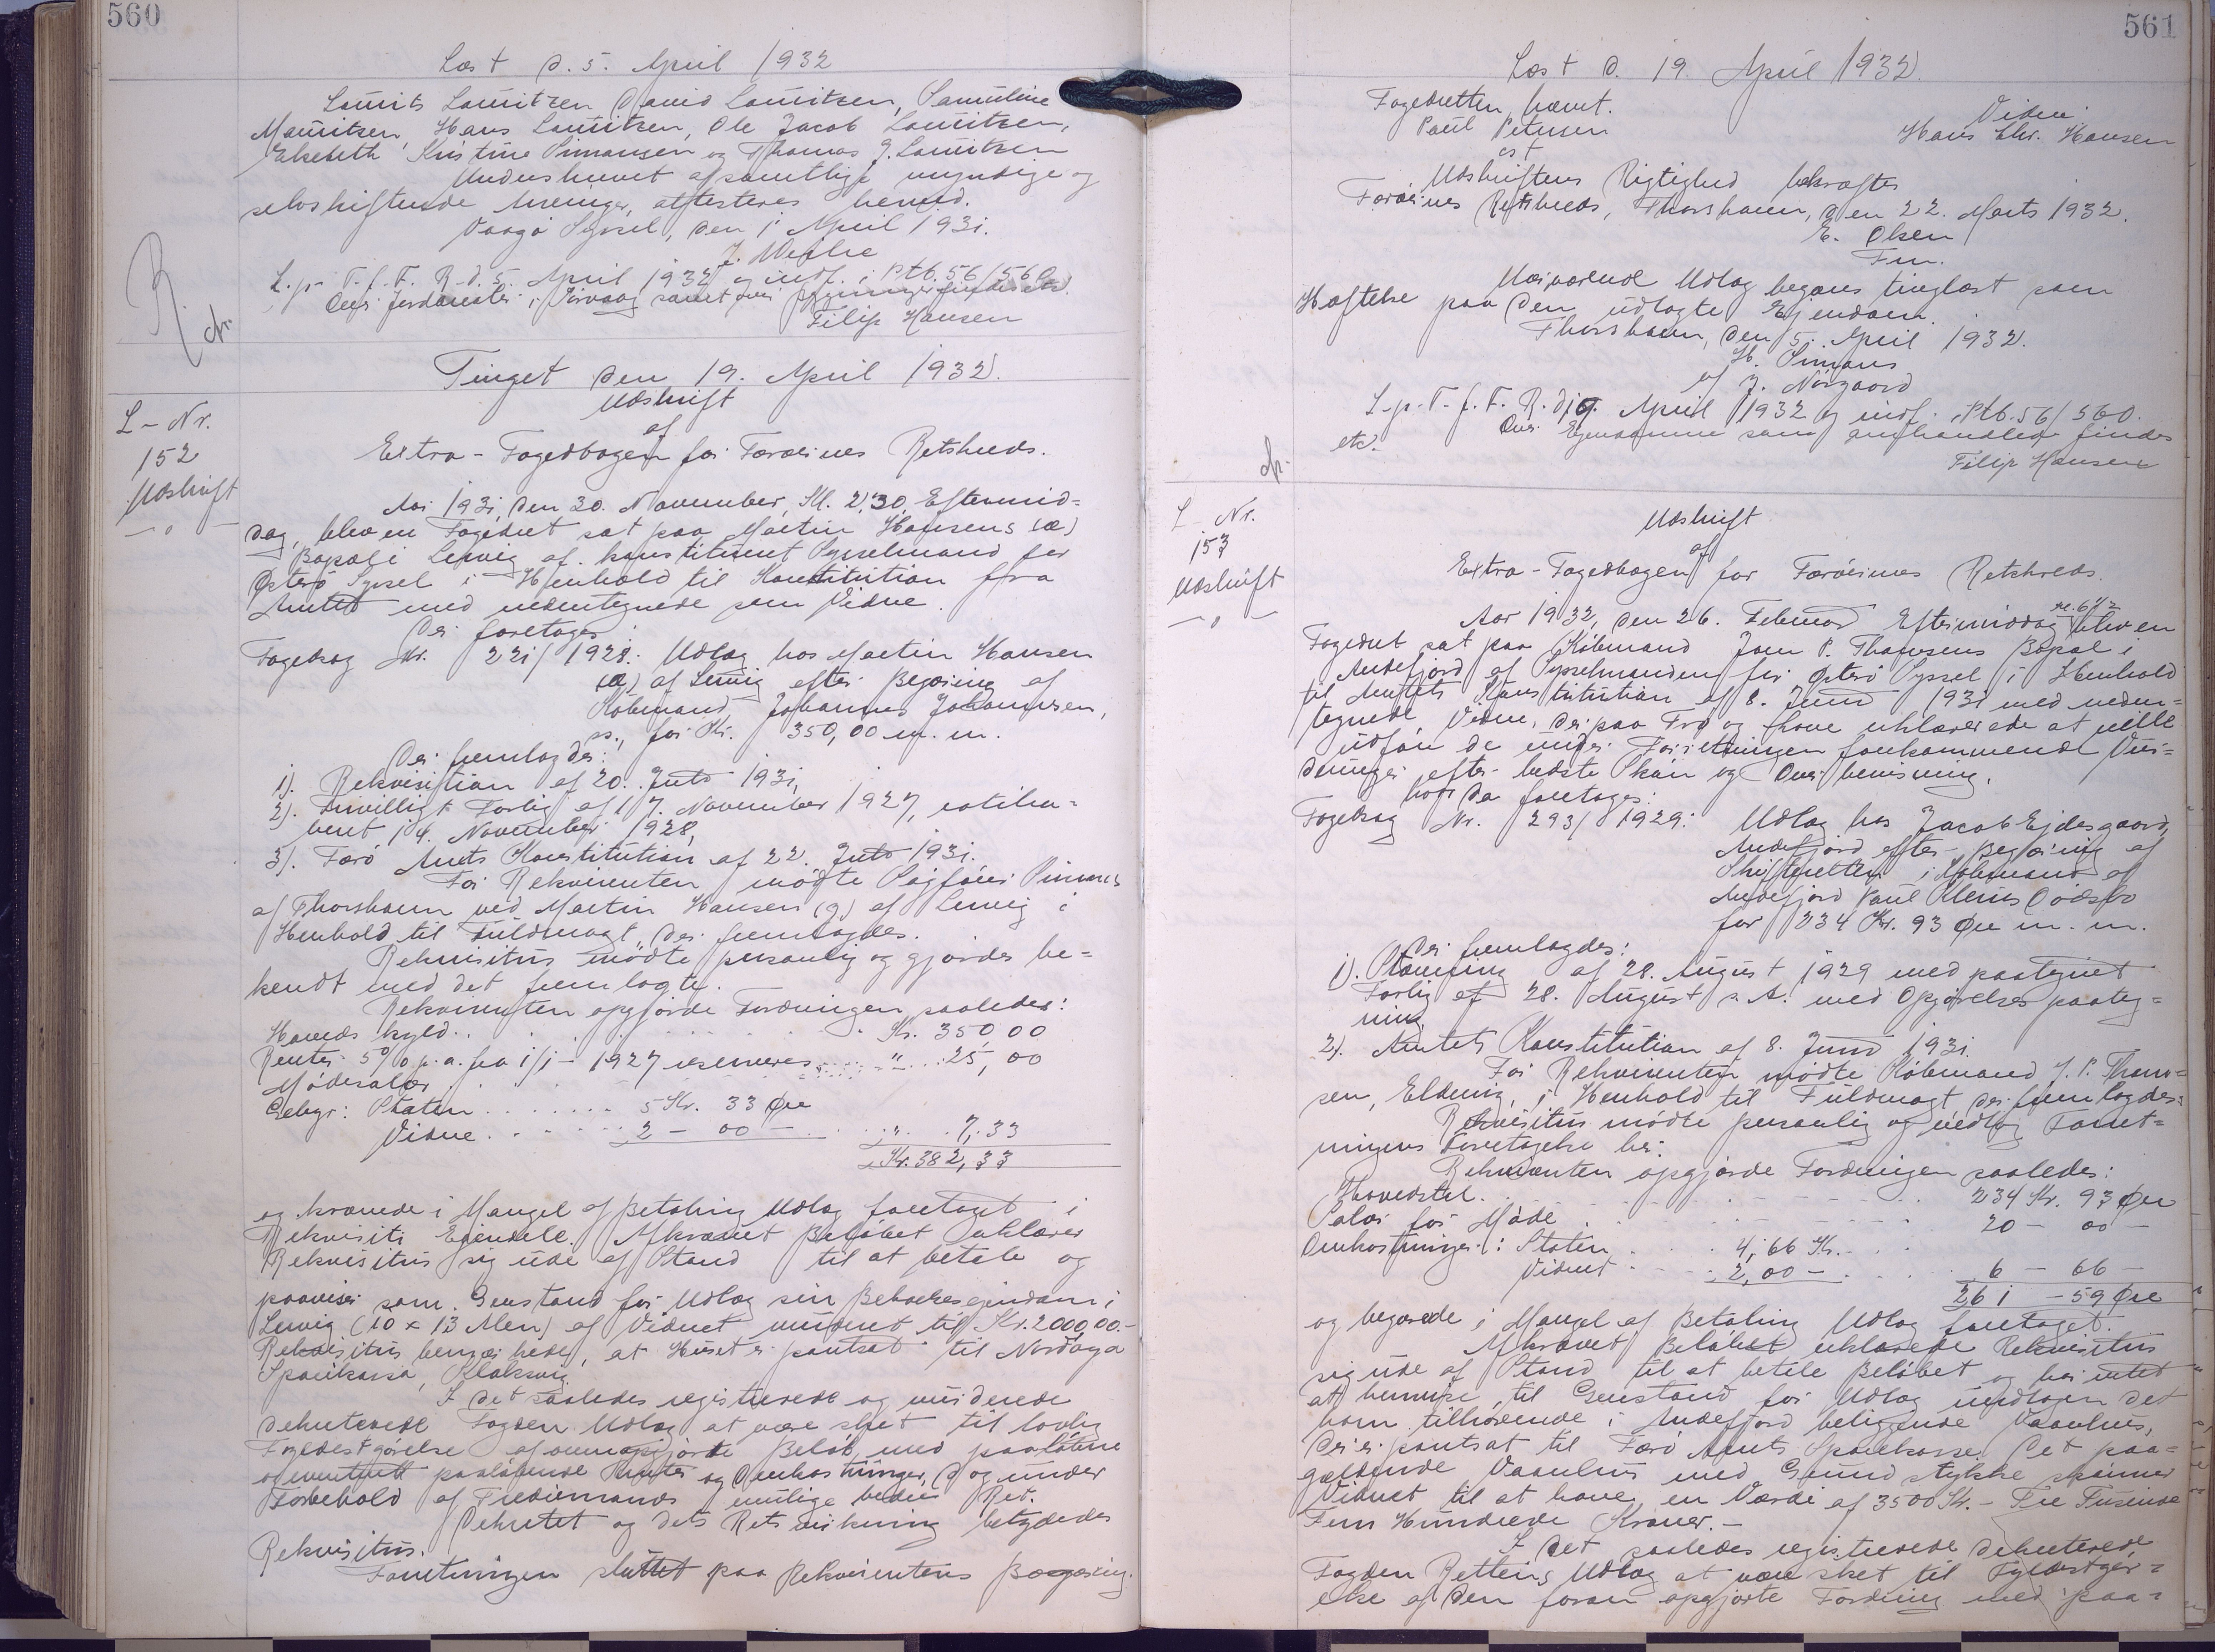 560
Læst d. 5. April 1932
Laurits Lauritzen David Lauritzen, Samuline
Mauritsen, Hans Lauritzen, Ole Jacob Lauritzen,
Elsebeth Kristine Simonsen og Thomas J. Lauritzen
Underskrevet af samtlige myndige og
selvskiftende Arvinger, attesteres herved.
Vaagø Syssel, den 1 April 1931.
L. p. T. f. F. R. d. 5. April 1932 og indf. i Ptb. 56/560
Filip Hansen
Tinget den 19. April 1932.
L-Nr.
152
Udskrift
Udskrift
af
Extra-Fogedbogen for Færøernes Retskreds.
Aar 1931, den 30. November, Kl. 2,30, Eftermid=
dag, blev en Fogedret sat paa Martin Hansens (æ)
Bopæl i Lervig af konstitueret Sysselmand for
Østerø Syssel i Henhold til Konstitution fra
Amtet med nedentegnede som Vidne.
Der foretoges:
Fogedsag Nr. 221/1928: Udlæg hos Martin Hansen
(æ) af Lervig efter Begæring af
Købmand Johannes Johannesen,
ss., for Kr. 350,00 m. m.
Der fremlagdes:
1). Rekvisition af 20. Juli 1931,
2). Frivilligt Forlig af 17. November 1927, ratiha=
beret 14. November 1928,
3). Færø Amts Konstitution af 22. Juli 1931.
For Rekvirenten mødte Sagfører Simonsen
af Thorshavn ved Martin Hansen (g) af Lervig i
Henhold til Fuldmagt, der fremlagdes.
Rekvisitus mødte personlig og gjordes be=
kendt med det fremlagte.
Rekvirenten opgjorde Fordringen saaledes:
Hovedskyld . . . Kr. 350,00
Renter 5% p. a. fra 1/1 - 1927 reserveres
Mødesalær . . . " 25,00
Gebyr: Staten . . . 5 Kr. 33 Øre
Vidne . . . 2 - 00 - . . . " 7,33
Kr. 382,33
og krævede i Mangel af Betaling Udlæg foretaget i
Rekvisiti Ejendele. Afkrævet Beløbet erklærer
Rekvisitus sig ude af Stand til at betale og
paaviser som Genstand for Udlæg sin Beboelsesejendom i
Lervig (10 x 13 Alen) af Vidnet vurderet til Kr. 2000,00.-
Rekvisitus bemærkede, at Huset er pantsat til Nordoya
Sparikassa, Klaksvig.
I det saaledes registrerede og vurderede
dekreterede Fogden Udlæg at være sket til lovlig
Fyldestgørelse af ovenopgjorte Beløb med paaløbne
og eventuelt paaløbende Renter og Omkostninger, dog under
Forbehold af Trediemands mulige bedre Ret.
Dekretet og dets Retsvirkning betydedes
Rekvisitus.
Forretningen sluttet paa Rekvirentens Begæring.
561
Læst d. 19. April 1932.
Fogedretten hævet.
Paul Petersen
cst
Vidne:
Hans Chr. Hansen
Udskriftens Rigtighed bekræftes
Færøernes Retskreds, Thorshavn, den 22. Marts 1932.
E. Olsen
Fm.
Nærværende Udlæg begæres tinglæst som
Hæftelse paa den udlagte Ejendom.
Thorshavn, den 5. April 1932.
H. Simons
ef J. Nørgaard
L. p. T. f. F. R. d. 19. April 1932 og indf. i Ptb. 56/560.
Over Ejendomme som omhandlet findes
etc.
Filip Hansen
L Nr.
153
Udskrift
Udskrift
af
Extra-Fogedbogen for Færøernes Retskreds.
Aar 1932, den 26. Februar Eftermiddag Kl. 6 1/2 blev en
Fogedret sat paa Købmand Joen P. Thomsens Bopæl i
Andefjord af Sysselmanden for Østerø Syssel i Henhold
til Amtets Konstitution af 8. Juni 1931 med neden=
tegnede Vidne, der paa Tro og Love erklærede at ville
udføre de under Forretningen forekommende Vur=
deringer efter bedste Skøn og Overbevisning.
hvor da foretoges:
Fogedsag Nr. 293/1929: Udlæg hos Jacob Ejdesgaard,
Andefjord efter Begæring af
Skifteretten i Købmand af
Andefjord Paul Klerus Dødsbo
for 234 Kr. 93 Øre m. m.
Der fremlagdes:
1). Stævning af 28. August 1929 med paategnet
Forlig af 28. August s. A. med Opgørelses paateg=
ning.
2). Amtets Konstitution af 8. Juni 1931.
For Rekvirenten mødte Købmand J. P. Thom=
sen, Eldevig, i Henhold til Fuldmagt der fremlagdes.
Rekvisitus mødte personlig og vedtog Forret=
ningens Foretagelse her.
Rekvirenten opgjorde Fordringen saaledes:
Hovedstol . . . 234 Kr. 93 Øre
Salær for Møde . . . 20 - 00 -
Omkostninger: Staten . . . 4,66 Kr.
Vidnet . . . 2,00 - . . . 6 - 66 -
261 - 59 Øre
og begærede i Mangel af Betaling Udlæg foretaget.
Afkrævet Beløbet erklærede Rekvisitus
sig ude af Stand til at betale Beløbet og har intet
at bemærke, til Genstand for Udlæg inddrages det
ham tilhørende i Andefjord beliggende Vaanhus,
der er pantsat til Færø Amts Sparekasse. Det paa=
gældende Vaanhus med Grundstykke skønner
Vidnet til at have en Værdi af 3500 Kr. - Tre Tusinde
Fem Hundrede Kroner.-
I det saaledes registrerede dekreterede
Fogden Rettens Udlæg at være sket til Fyldestgør=
else af den foran opgjorte Fordring med paa=